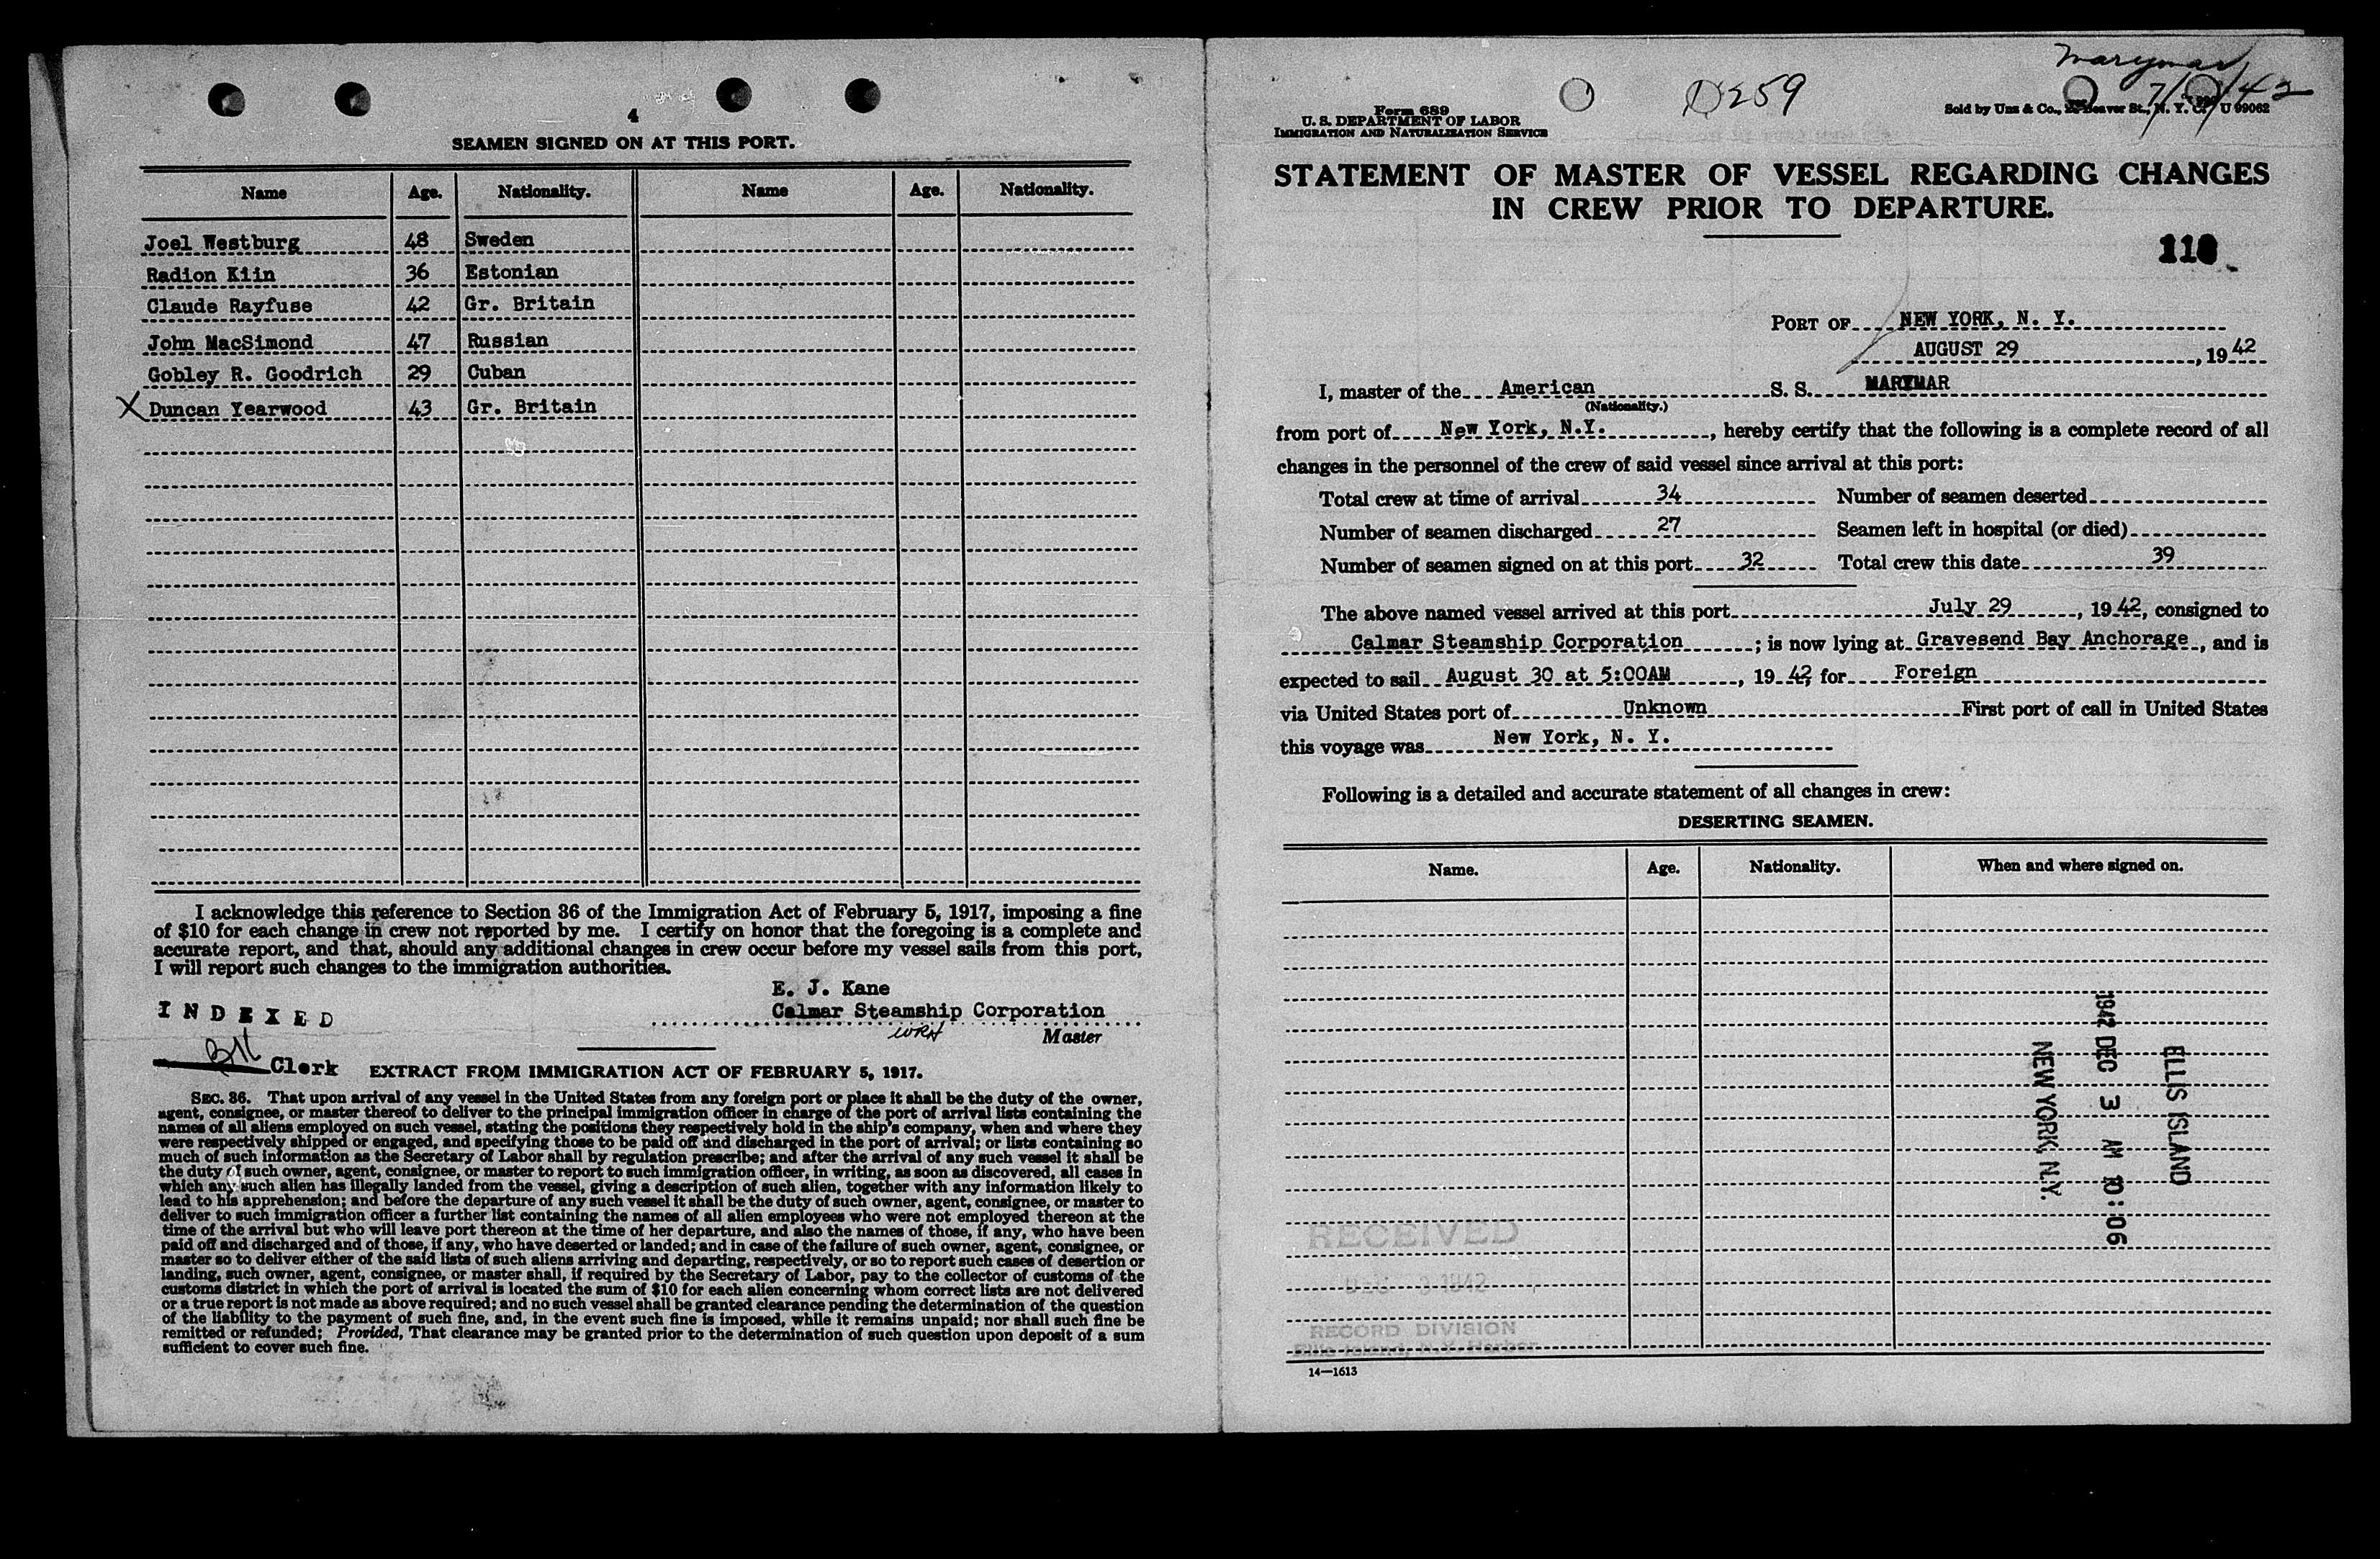 4
SEAMEN SIGNED ON AT THIS PORT.
Name Age. Nationality. Name Age. Nationality.
Joel Westburg 48 Sweden
Radion Kiin 36 Estonian
Claude Rayfuse 42 Gr. Britain
John MacSimond 47 Russian
Gobley R. Goodrich 29 Cuban
X Duncan Yearwood 43 Gr. Britain
I acknowledge this reference to Section 36 of the Immigration Act of February 5, 1917, imposing a fine
of $10 for each change in crew not reported by me. I certify on honor that the foregoing is a complete and
accurate report, and that, should any additional changes in crew occur before my vessel sails from this port,
I will report such changes to the immigration authorities.
E. J. Kane
Calmar Steamship Corporation
WRH
Master
INDEXED
Clerk
EXTRACT FROM IMMIGRATION ACT OF FEBRUARY 5, 1917.
SEC. 36. That upon arrival of any vessel in the United States from any foreign port or place it shall be the duty of the owner,
agent, consignee, or master thereof to deliver to the principal immigration officer in charge of the port of arrival lists containing the
names of all aliens employed on such vessel, stating the positions they respectively hold in the ship's company, when and where they
were respectively shipped or engaged, and specifying those to be paid off and discharged in the port of arrival; or lists containing so
much of such information as the Secretary of Labor shall by regulation prescribe; and after the arrival of any such vessel it shall be
the duty of such owner, agent, consignee, or master to report to such immigration officer, in writing, as soon as discovered, all cases in
which any such alien has illegally landed from the vessel, giving a description of such alien, together with any information likely to
lead to his apprehension; and before the departure of any such vessel it shall be the duty of such owner, agent, consignee, or master to
deliver to such immigration officer a further list containing the names of all alien employees who were not employed thereon at the
time of the arrival but who will leave port thereon at the time of her departure, and also the names of those, if any, who have been
paid off and discharged and of those, if any, who have deserted or landed; and in case of the failure of such owner, agent, consignee, or
master so to deliver either of the said lists of such aliens arriving and departing, respectively, or so to report such cases of desertion or
landing, such owner, agent, consignee, or master shall, if required by the Secretary of Labor, pay to the collector of customs of the
customs district in which the port of arrival is located the sum of $10 for each alien concerning whom correct lists are not delivered
or a true report is not made as above required; and no such vessel shall be granted clearance pending the determination of the question
of the liability to the payment of such fine, and, in the event such fine is imposed, while it remains unpaid; nor shall such fine be
remitted or refunded; Provided, That clearance may be granted prior to the determination of such question upon deposit of a sum
sufficient to cover such fine.
Marymar
7/29/42
D259
Form 689
U. S. DEPARTMENT OF LABOR
IMMIGRATION AND NATURALIZATION SERVICE
Sold by Unz & Co., Beaver St., N. Y. C. U 99062
STATEMENT OF MASTER OF VESSEL REGARDING CHANGES
IN CREW PRIOR TO DEPARTURE.
118
PORT OF NEW YORK, N. Y.
AUGUST 29, 1942
I, master of the American S. S. MARYMAR
(Nationality.)
from port of New York, N.Y., hereby certify that the following is a complete record of all
changes in the personnel of the crew of said vessel since arrival at this port:
Total crew at time of arrival 34 Number of seamen deserted
Number of seamen discharged 27 Seamen left in hospital (or died)
Number of seamen signed on at this port 32 Total crew this date 39
The above named vessel arrived at this port July 29, 1942, consigned to
Calmar Steamship Corporation; is now lying at Gravesend Bay Anchorage, and is
expected to sail August 30 at 5:00AM, 1942 for Foreign
via United States port of Unknown First port of call in United States
this voyage was New York, N. Y.
Following is a detailed and accurate statement of all changes in crew:
DESERTING SEAMEN.
Name. Age. Nationality. When and where signed on.
ELLIS ISLAND
1942 DEC 3 AM 10:06
NEW YORK, N.Y.
RECEIVED
1942
RECORD DIVISION
Ellis Island, N.Y. Harbor
14—1613